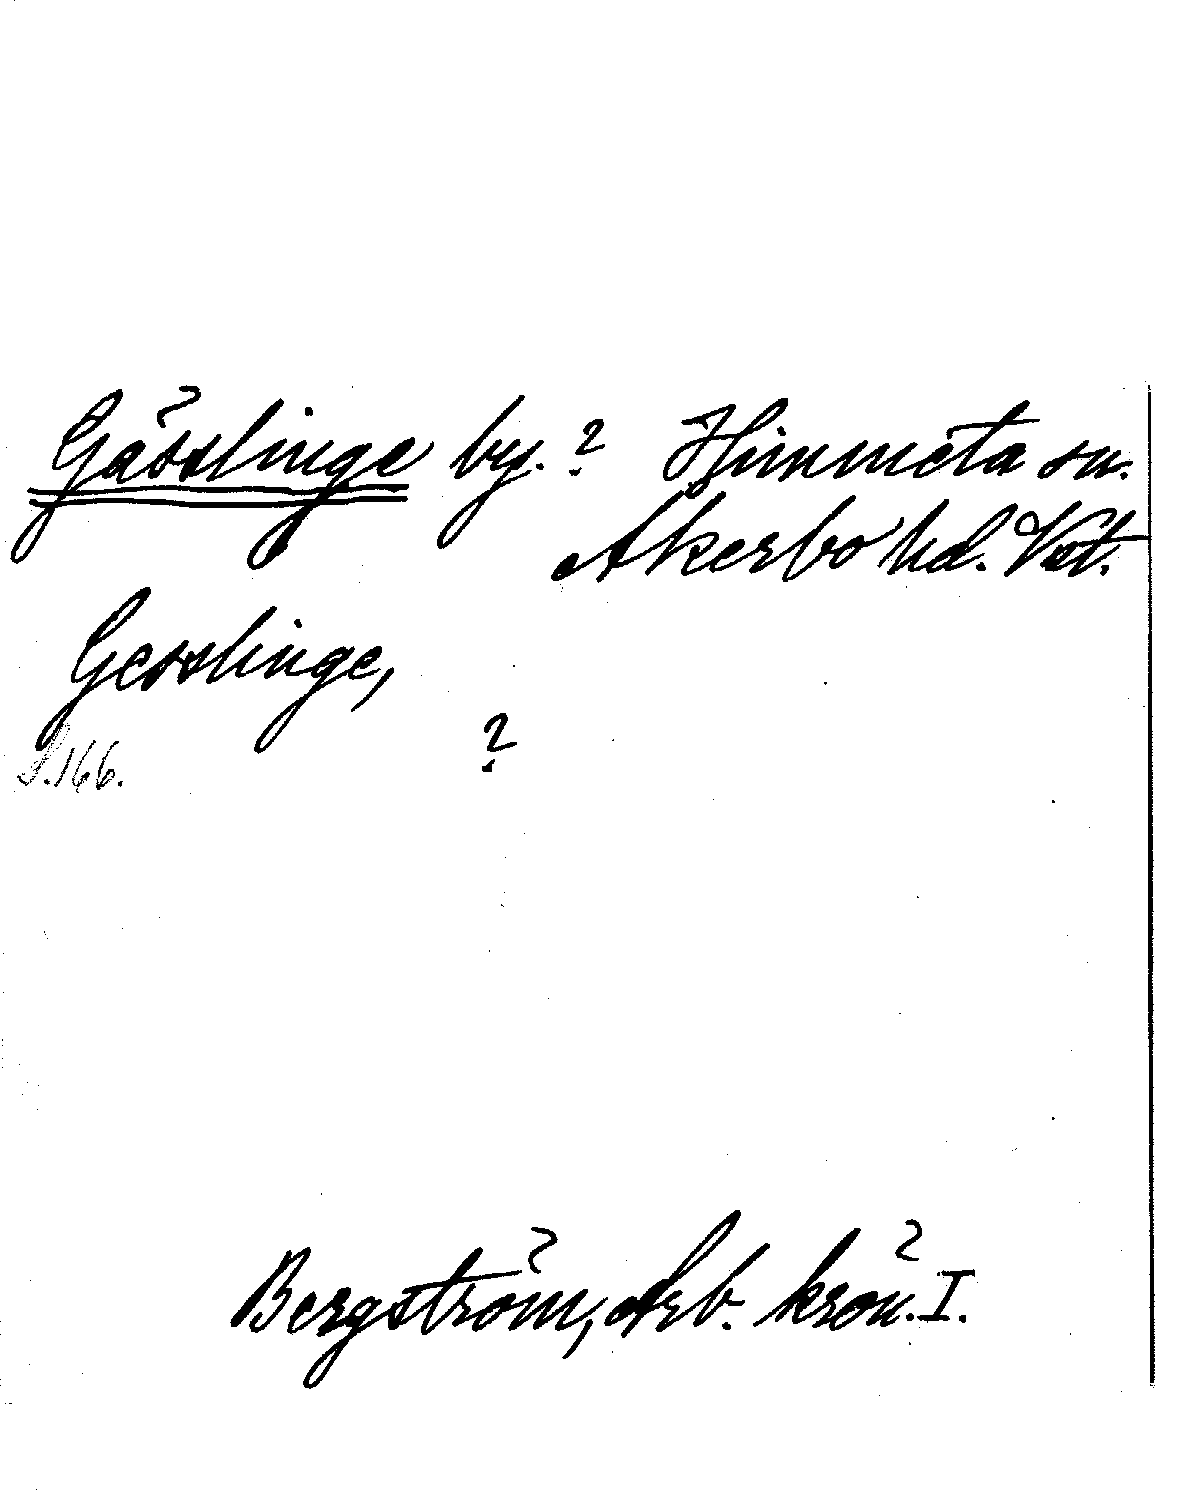 Gässlinge by.? Himmeta sn.
Åkerbo hd. Vst.
Gesslinge,
?
S.166.
Bergström, Arb. krön. I.